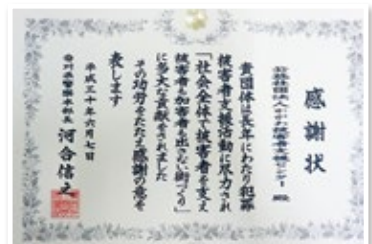 感謝状
公益社団法人かがわ被害者支援センター 殿
貴団体は長年にわたり犯罪
被害者支援活動に尽力され
「社会全体で被害者を支え
被害者も加害者も出さない街づくり」
に多大な貢献をされました
その功労をたたえ感謝の意を
表します
平成三十年六月七日
香川県警察本部長 河合信之